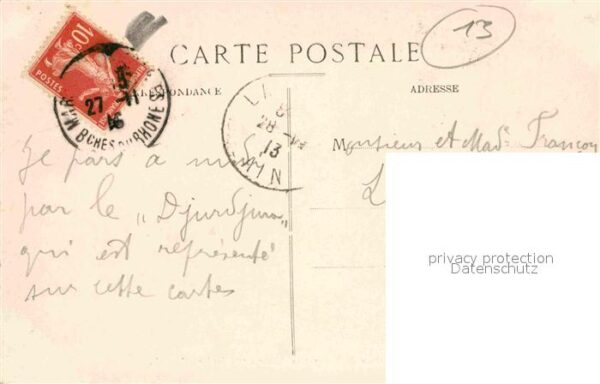 13
CARTE POSTALE
CORRESPONDANCE
ADRESSE
10
POSTES
27 -11
16
BCHES DU RHONE
8
28 -
13
Monsieur et Mad. François
L
Je pars à midi
par le „Djurdjura"
qui est représenté
sur cette cartes
privacy protection
Datenschutz